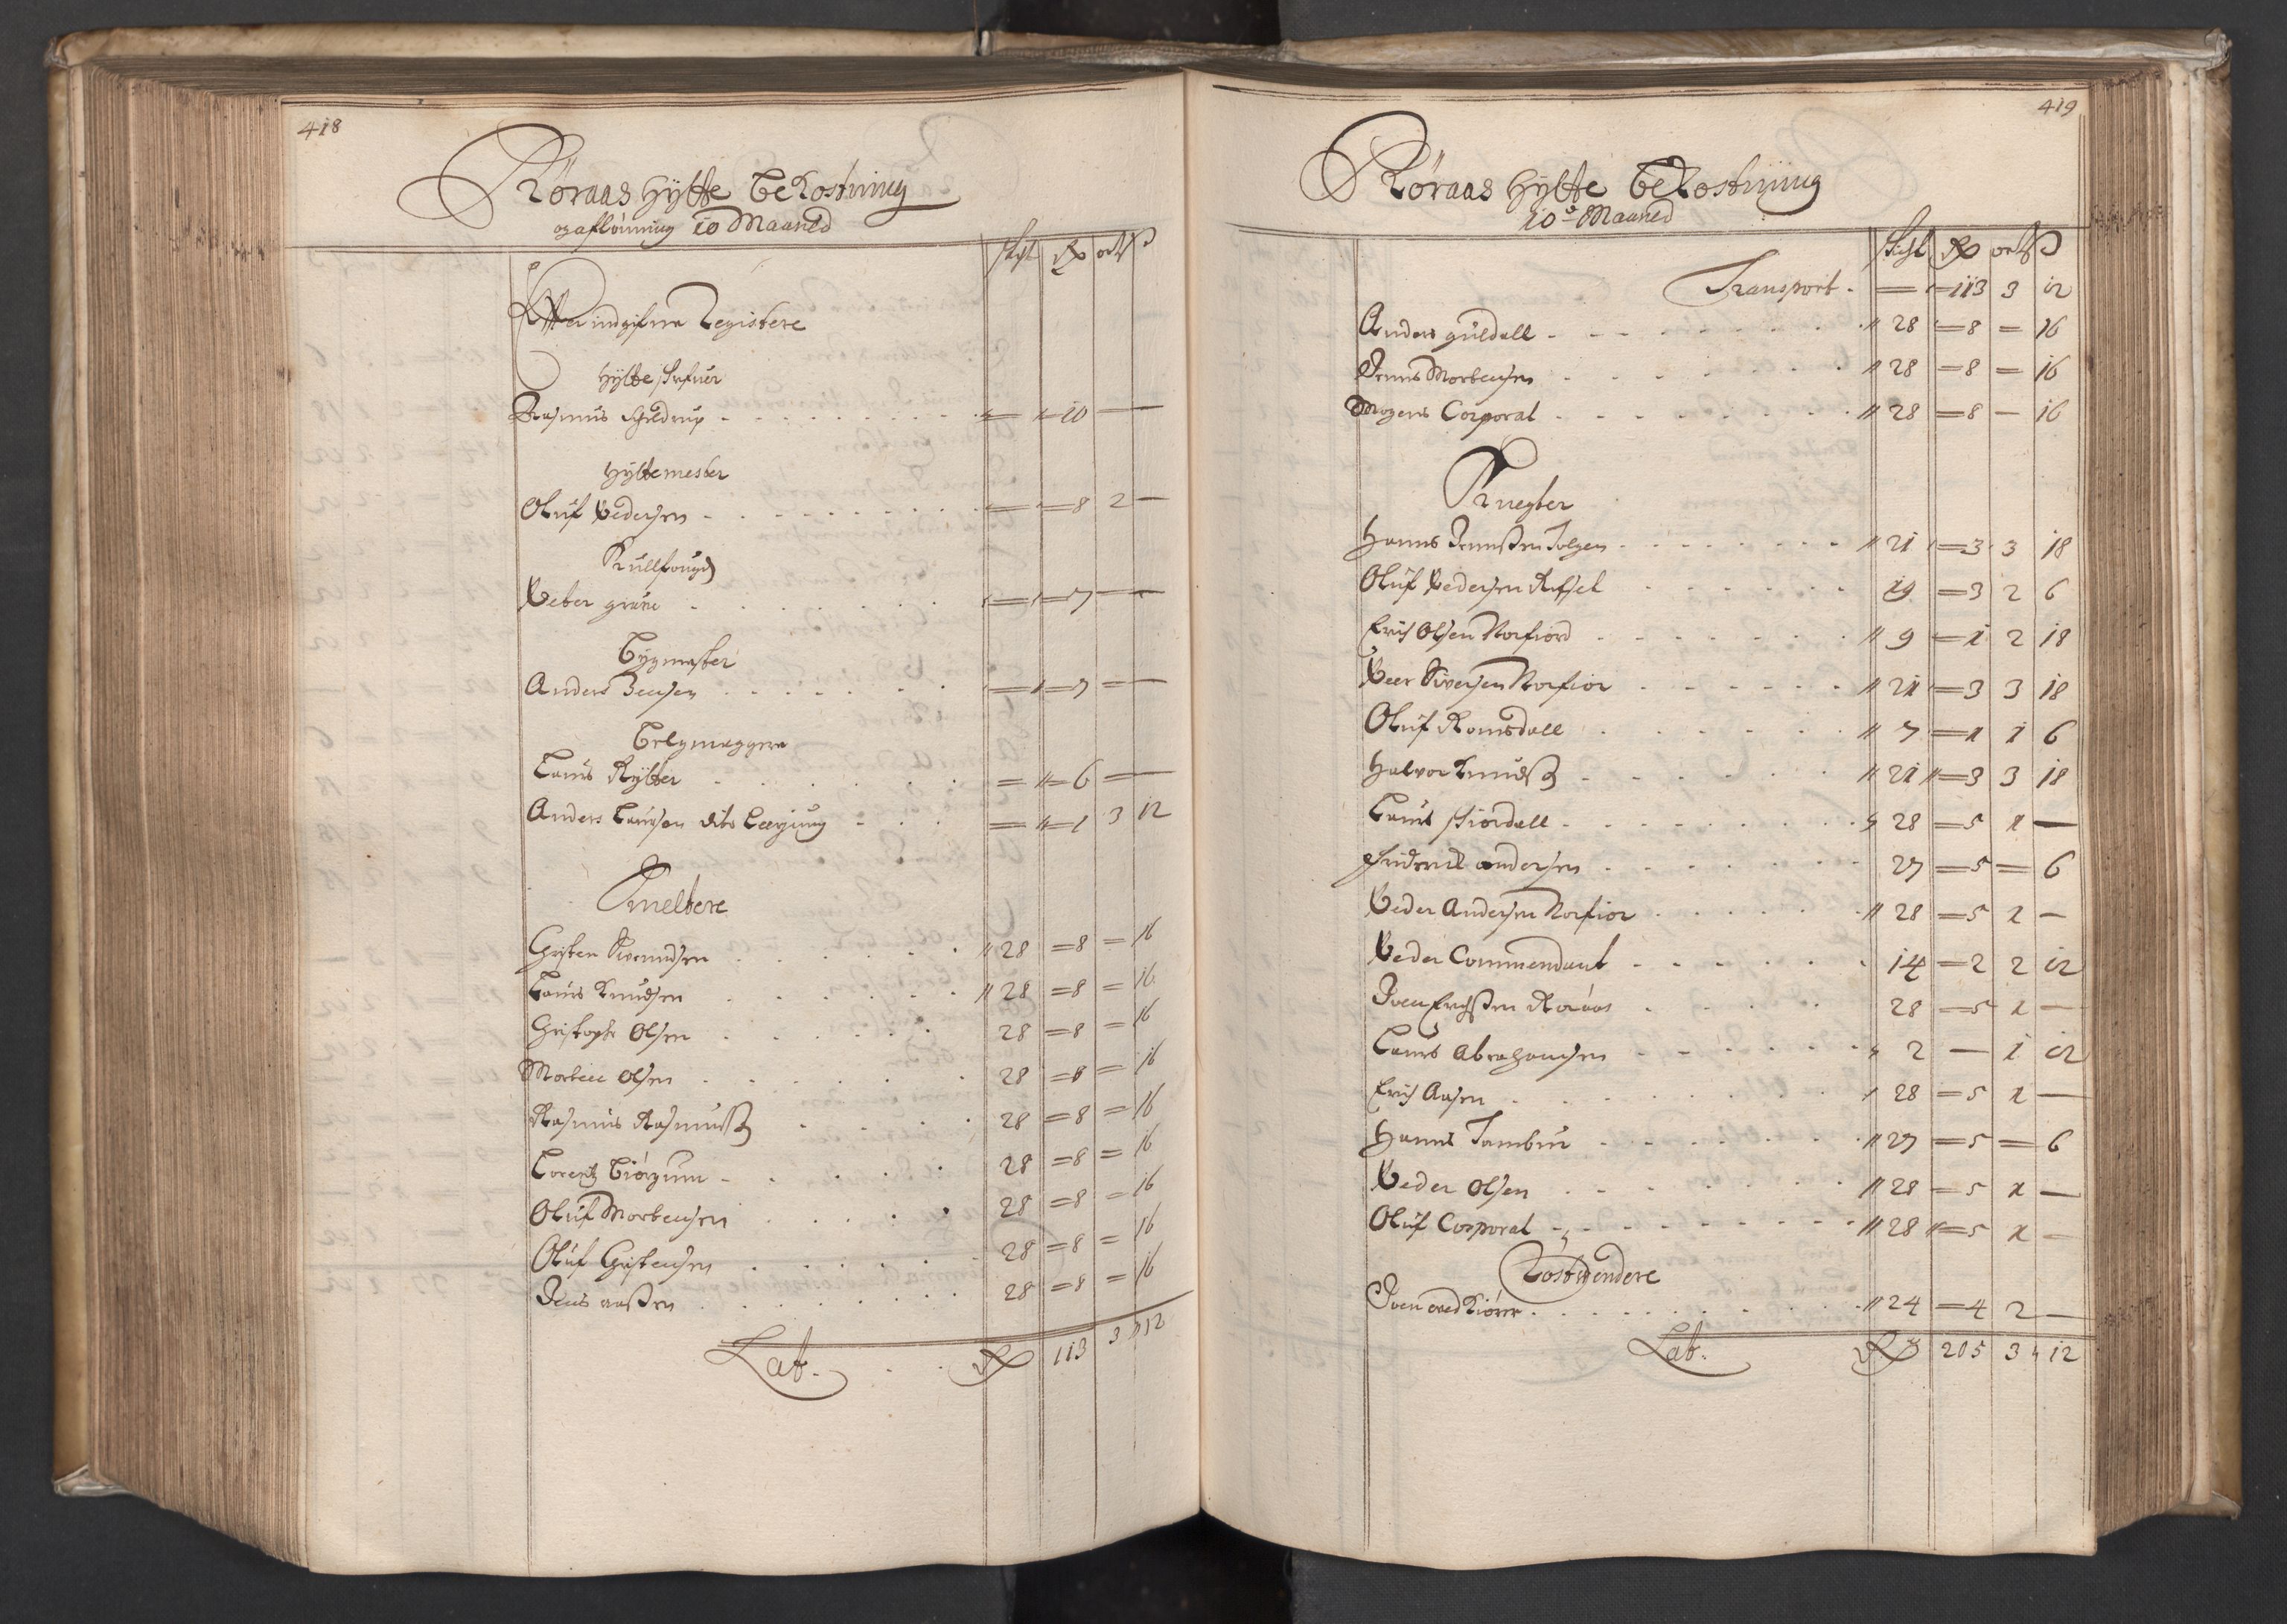 418
Røraas Hÿtte Bekostning
og aflønning 10 Maaned
skist Rdr ort ß
Effter indgifne Registere
Hÿtteskrifuer
Rasmus Schieldrup - 10 -
Hÿttemester
Oluf Pedersen - 8 2 -
Kullfougd
Peter grüne - 7 -
Bÿgmester
Anders Jensen - 7 -
Belgmaggere
Lauris Rÿtter - 6 -
Anders Laursen dito 1 3 12
Smeltere
Christen Sivendsen 28 8 = 16
Lauris Knudsen 28 8 = 16
Christopher Olsen 28 8 = 16
Morten Olsen 28 8 = 16
Rasmus Rasmusß 28 8 = 16
Lorentz Biørgum 28 8 = 16
Oluf Mortensen 28 8 = 16
Oluf Christensen 28 8 = 16
Jens aaßen 28 8 = 16
Lat. Rdr 113 3 12
419
Røraas Hÿtte Bekostning
10de Maaned
skist Rdr ort ß
Transport - 113 3 12
Anders güldall 28 8 = 16
Jenns Mortensen 28 8 = 16
Mogens Corporal 28 8 - 16
Knegter
Hanns Jennßen Tolgen 21 3 3 18
Oluf Pedersen 19 3 2 6
Erich Olsen Norfiord 9 1 2 18
Peer Siversen Norfior 21 3 3 18
Oluf Romsdall 7 1 1 6
Halvor Knudß 21 3 3 18
Lauris Stiørdall 28 5 1 -
Friderich andersen 27 5 = 6
Peder Andersen Norfior 28 5 1 -
Peder Commendant 14 2 2 12
Joen Erichßen Røraas 28 5 1 -
Laurs Abrahamsen 2 - 1 12
Erich Aasen 28 5 1 -
Hanns Tambur 27 5 = 6
Peder Olsen 28 5 1 -
Oluf Corporal 28 5 1 -
Rostwendere
Joen ved Kiøren 24 4 2 -
Lat. Rdr 205 3 12